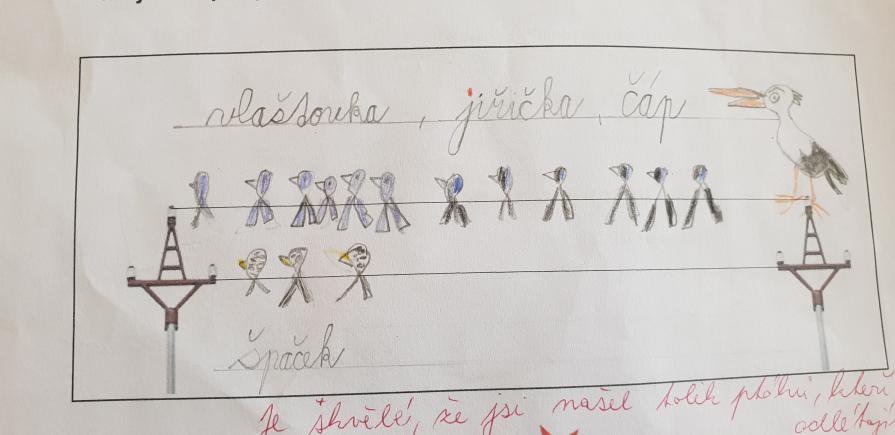 vlaštovka, jiřička, čáp
špaček
Je skvělé, že jsi našel tolik ptáků, kteří
odlétají